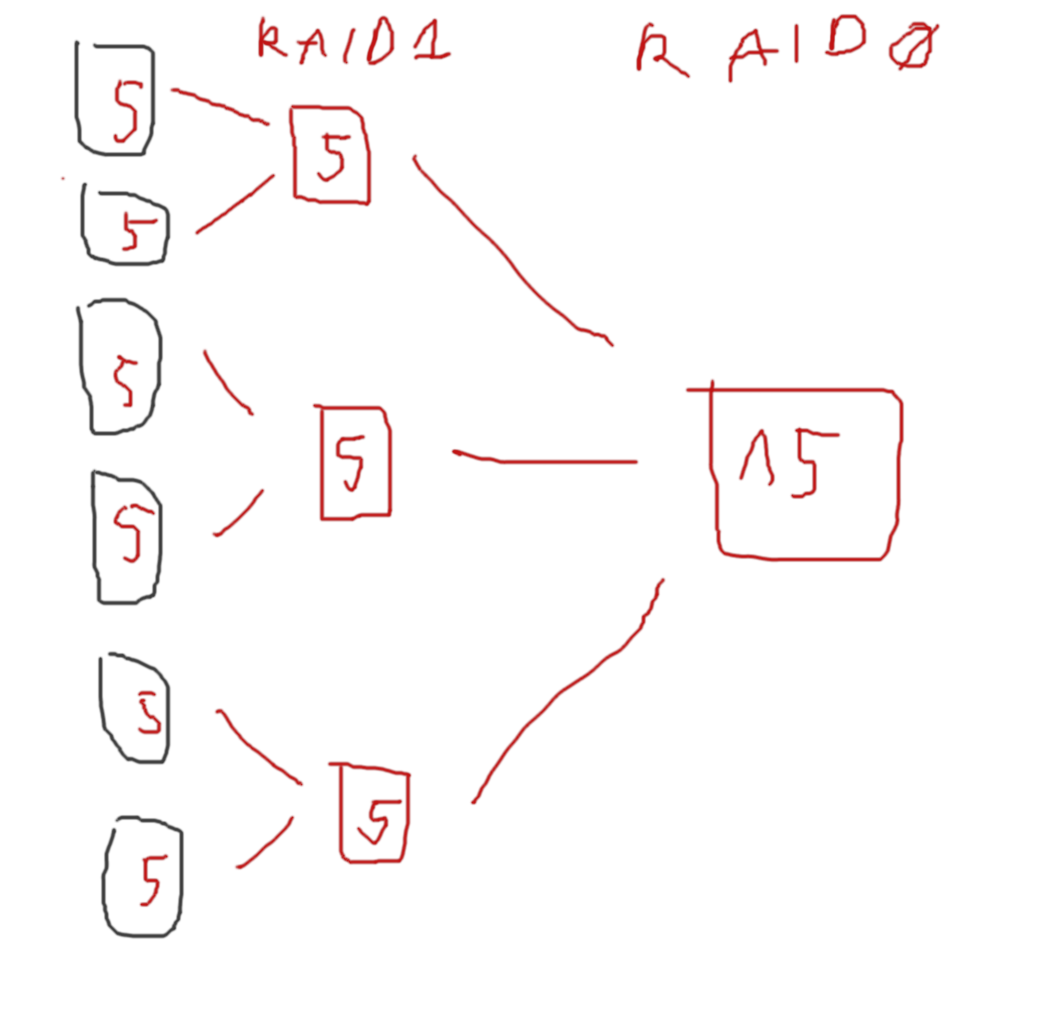 RAID1 RAID0
5
5
5
5
5
15
5
5
5
5